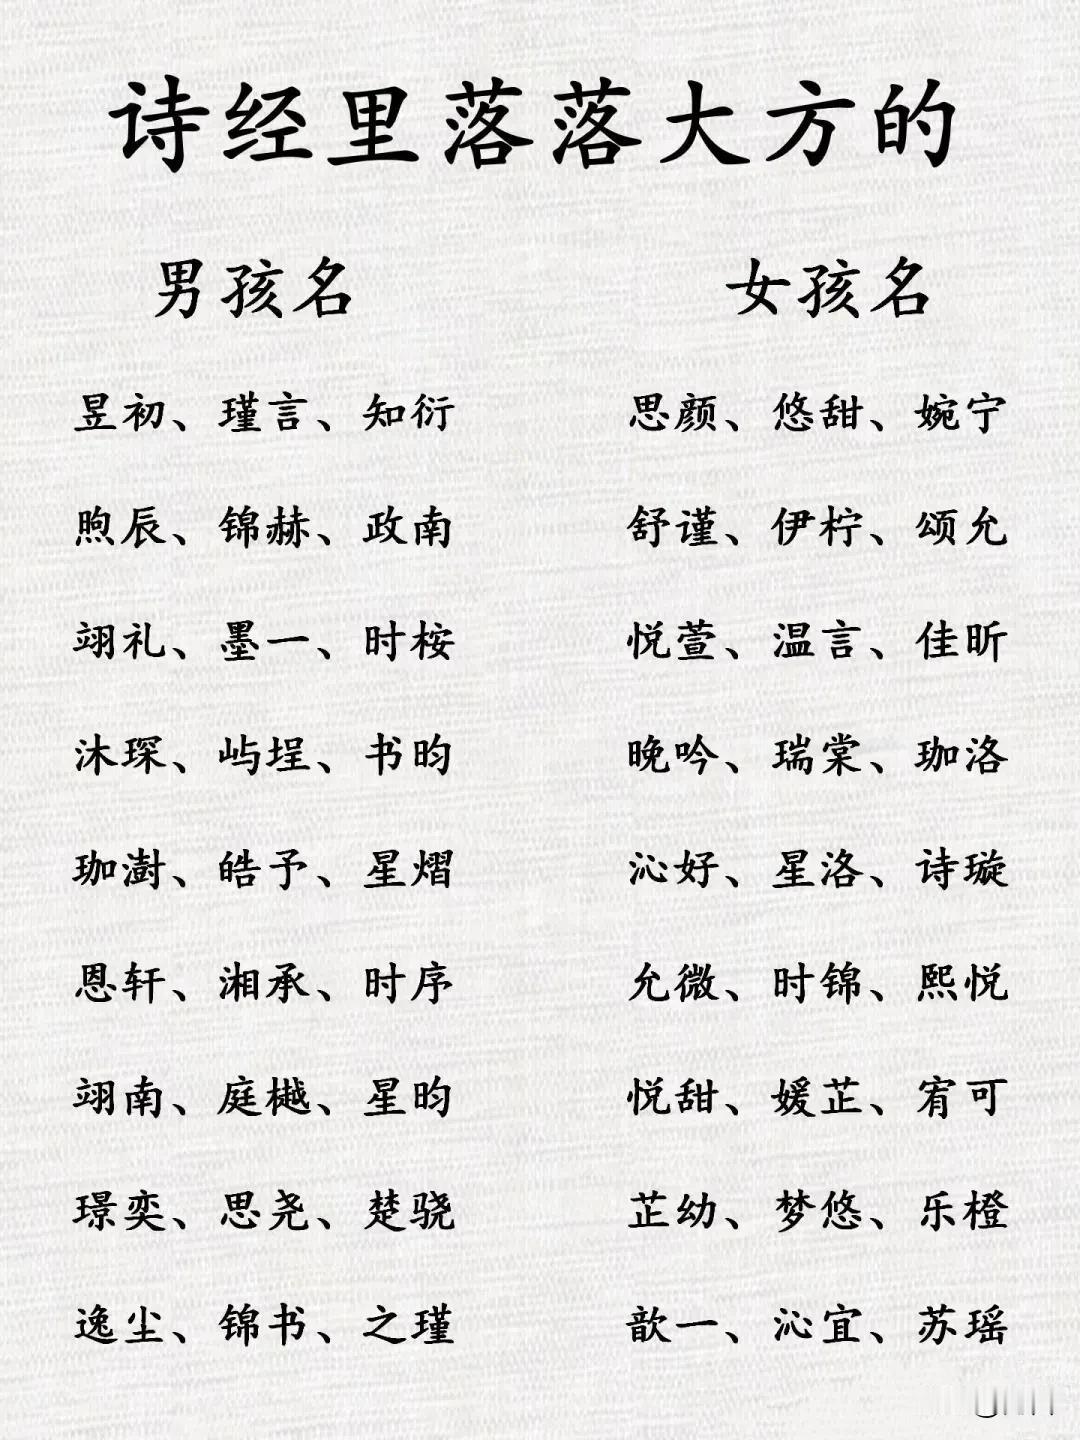 诗经里落落大方的
男孩名 女孩名
昱初、瑾言、知衍 思颜、悠甜、婉宁
煦辰、锦赫、政南 舒谨、伊柠、颂允
翊礼、墨一、时桉 悦萱、温言、佳昕
沐琛、屿埕、书昀 晚吟、瑞棠、珈洛
珈澍、皓予、星熠 沁好、星洛、诗璇
恩轩、湘承、时序 允微、时锦、熙悦
翊南、庭樾、星昀 悦甜、媛芷、宥可
璟奕、思尧、楚骁 芷幼、梦悠、乐橙
逸尘、锦书、之瑾 歆一、沁宜、苏瑶